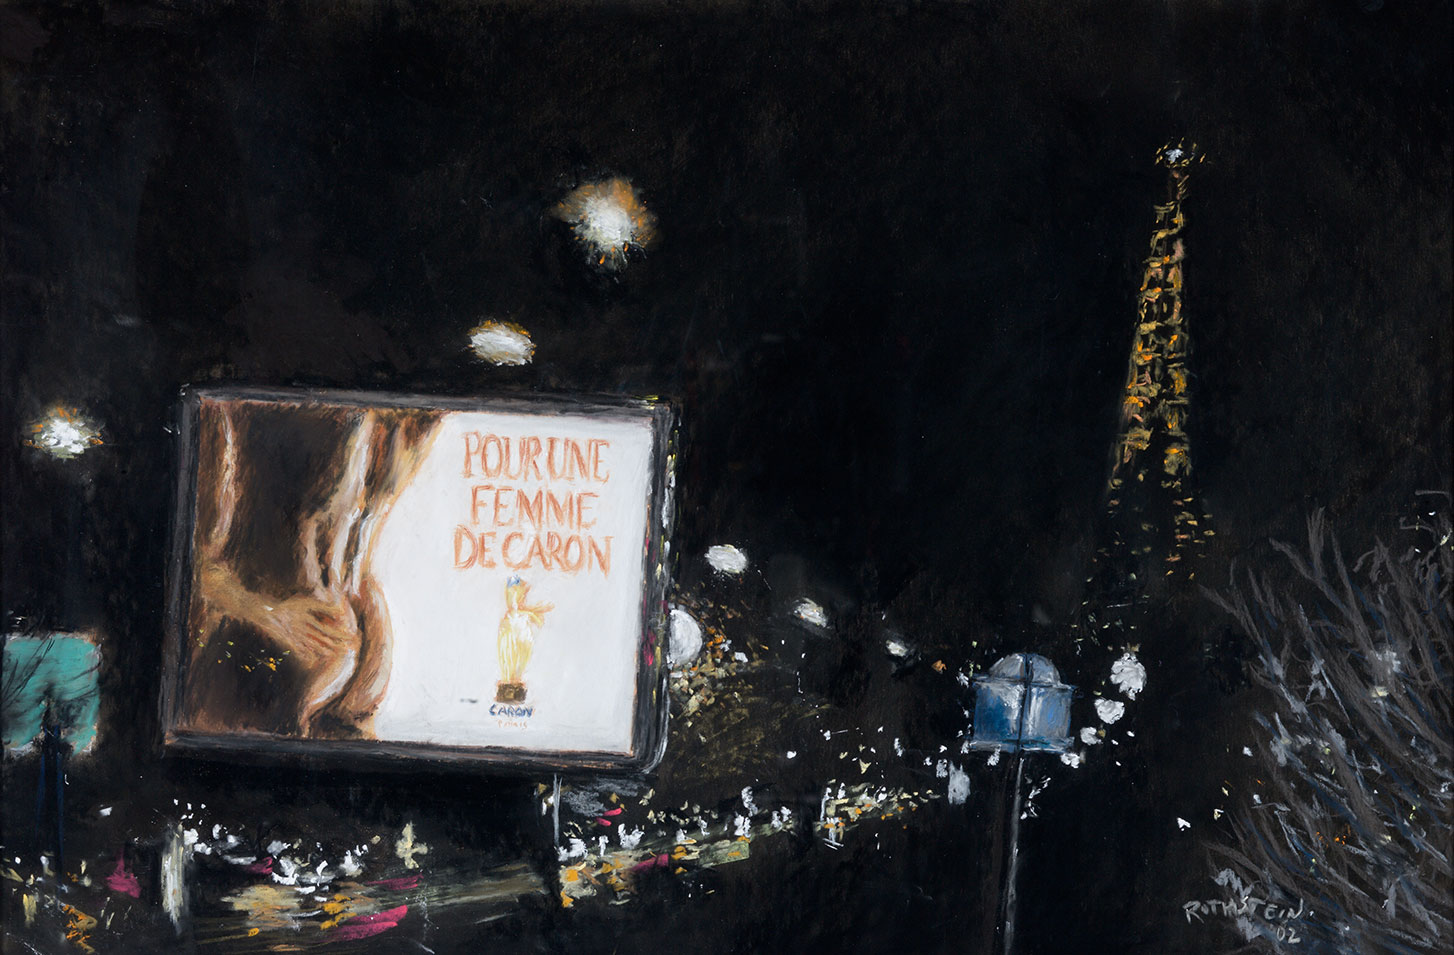 POUR UNE
FEMME
DE CARON
CARON
PARIS
ROTHSTEIN.
'02